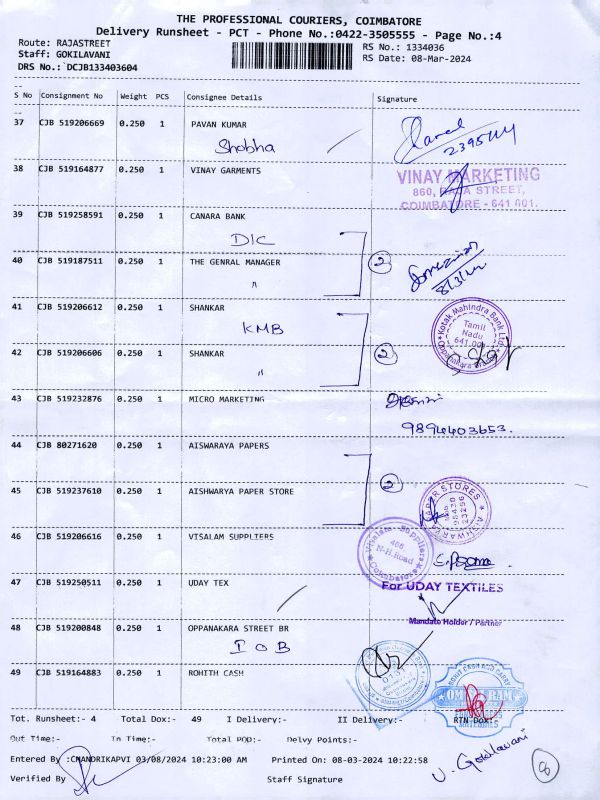 THE PROFESSIONAL COURIERS, COIMBATORE
Delivery Runsheet - PCT - Phone No.:0422-3505555 - Page No.:4
Route: RAJASTREET
Staff: GOKILAVANI
DRS No.: DCJB133403604
RS No.: 1334036
RS Date: 08-Mar-2024
S No Consignment No Weight PCS Consignee Details Signature
37 CJB 519206669 0.250 1 PAVAN KUMAR
Shobha
38 CJB 519164877 0.250 1 VINAY GARMENTS
VINAY MARKETING
860, RAJA STREET,
COIMBATORE - 641 001.
39 CJB 519258591 0.250 1 CANARA BANK
DIC
40 CJB 519187511 0.250 1 THE GENRAL MANAGER
"
2
8/3/24
41 CJB 519206612 0.250 1 SHANKAR
KMB
Kotak Mahindra Bank Ltd.
Tamil
Nadu
641 001
42 CJB 519206606 0.250 1 SHANKAR
"
2
43 CJB 519232876 0.250 1 MICRO MARKETING
9894403653.
44 CJB 80271620 0.250 1 AISWARAYA PAPERS
2
45 CJB 519237610 0.250 1 AISHWARYA PAPER STORE
AISHWARYA PAPER STORES
46 CJB 519206616 0.250 1 VISALAM SUPPLIERS
Visalam Suppliers
N.H.Road
Coimbatore
47 CJB 519250511 0.250 1 UDAY TEX
For UDAY TEXTILES
Mandate Holder / Partner
48 CJB 519200848 0.250 1 OPPANAKARA STREET BR
IOB
49 CJB 519164883 0.250 1 ROHITH CASH
Tot. Runsheet:- 4 Total Dox:- 49 I Delivery:- II Delivery:- RTN Dox:-
Out Time:- In Time:- Total POD:- Delvy Points:-
Entered By :CHANDRIKAPVI 03/08/2024 10:23:00 AM Printed On: 08-03-2024 10:22:58
Verified By Staff Signature
U. Gokilavani